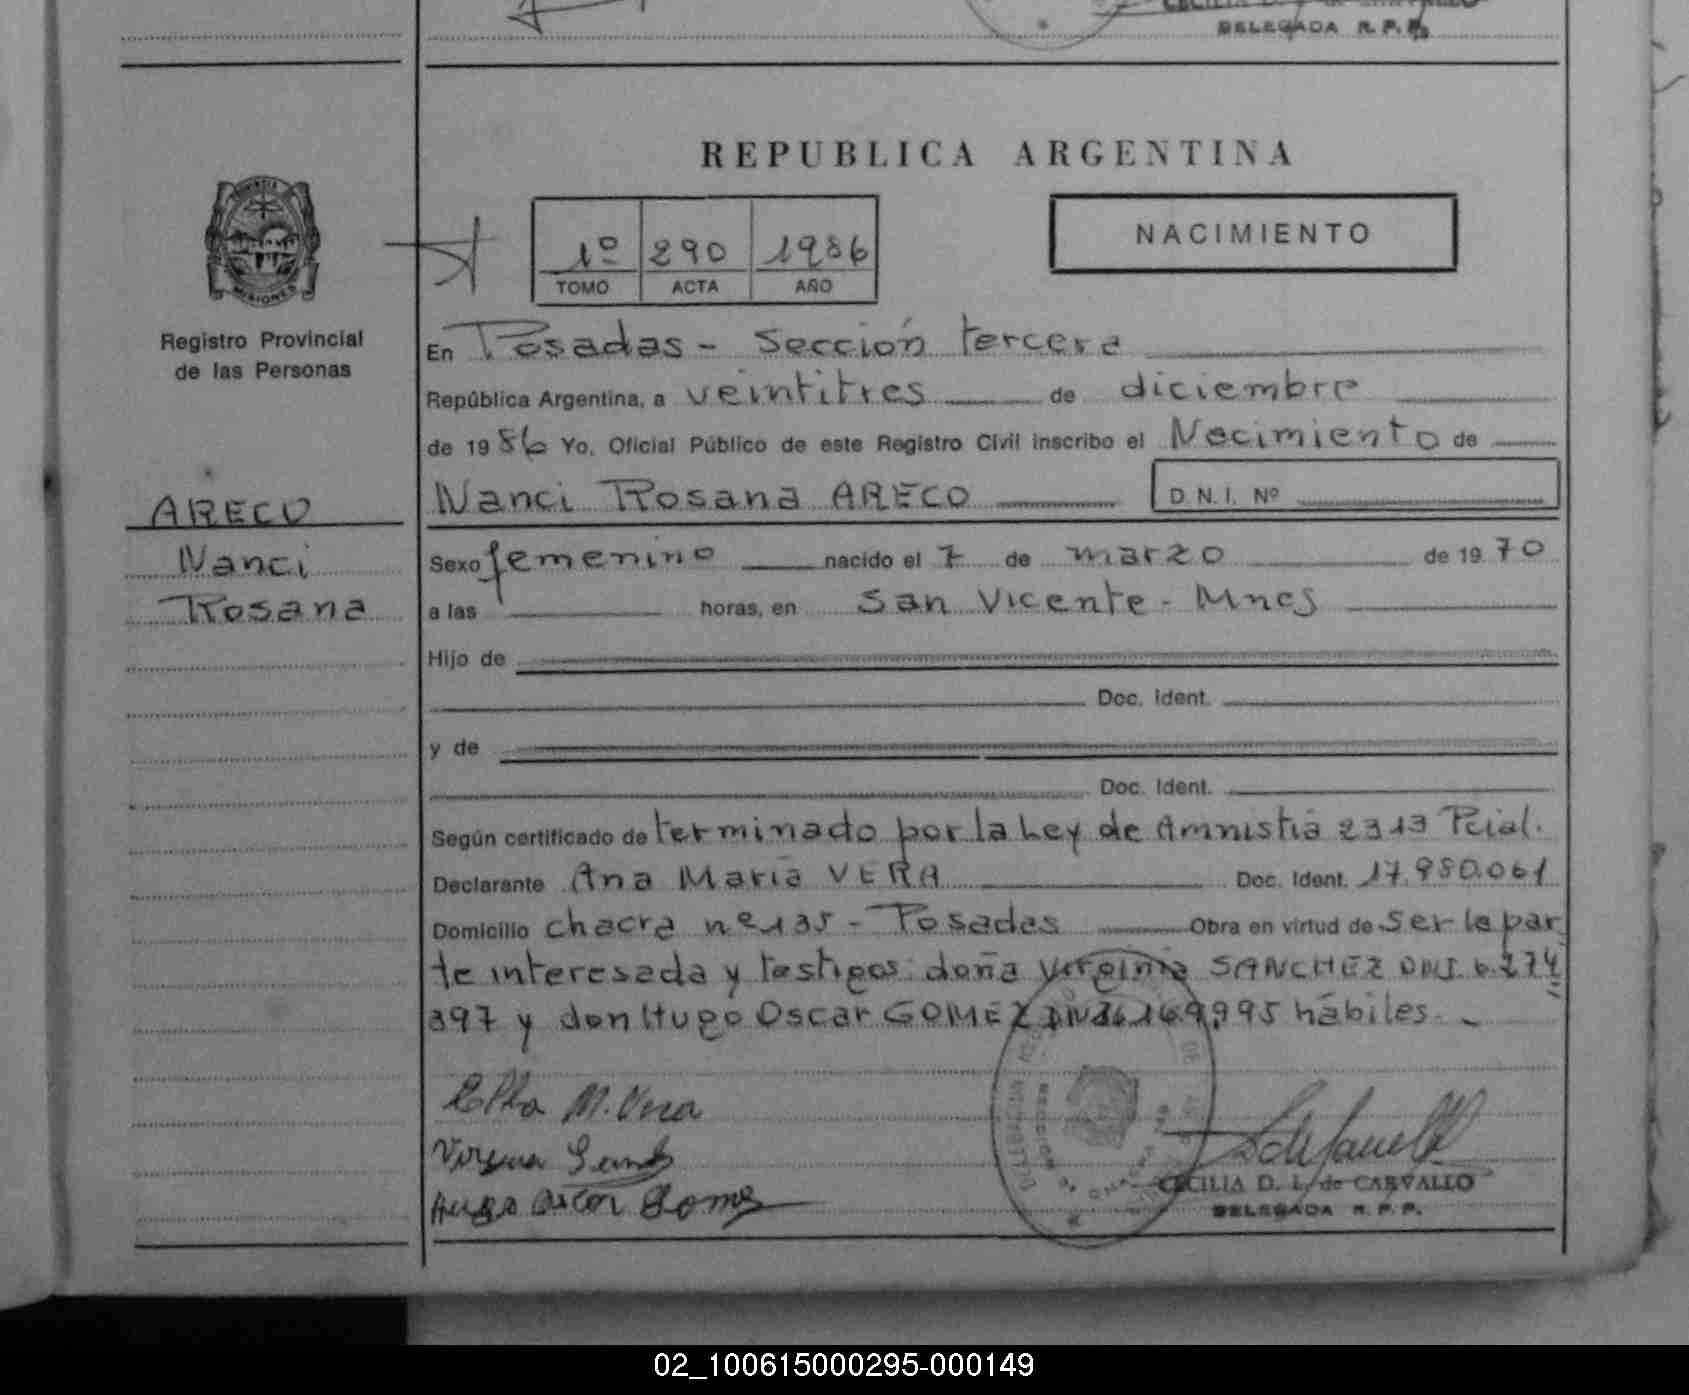 DELEGADA R.P.P.
REPUBLICA ARGENTINA
PROVINCIA
MISIONES
Registro Provincial
de las Personas
1º 290 1986
TOMO ACTA AÑO
NACIMIENTO
En Posadas - Sección tercera
República Argentina, a veintitres de diciembre
de 1986 Yo, Oficial Público de este Registro Civil inscribo el Nacimiento de
Nanci Rosana ARECO D.N.I. Nº
ARECO
Nanci
Rosana
Sexo femenino nacido el 7 de marzo de 1970
a las horas, en San Vicente - Mnes
Hijo de
Doc. Ident.
y de
Doc. Ident.
Según certificado de terminado por la Ley de Amnistia 2313 Pcial.
Declarante Ana Maria VERA Doc. Ident. 17.980.061
Domicilio chacra nº 135 - Posadas Obra en virtud de ser la par
te interesada y testigos: doña Virginia SANCHEZ DNI. 6.274
397 y don Hugo Oscar GOMEZ hábiles.
M. Vera
Hugo Oscar Gomez
CECILIA D. L. de CARVALLO
DELEGADA R.P.P.
02_100615000295-000149